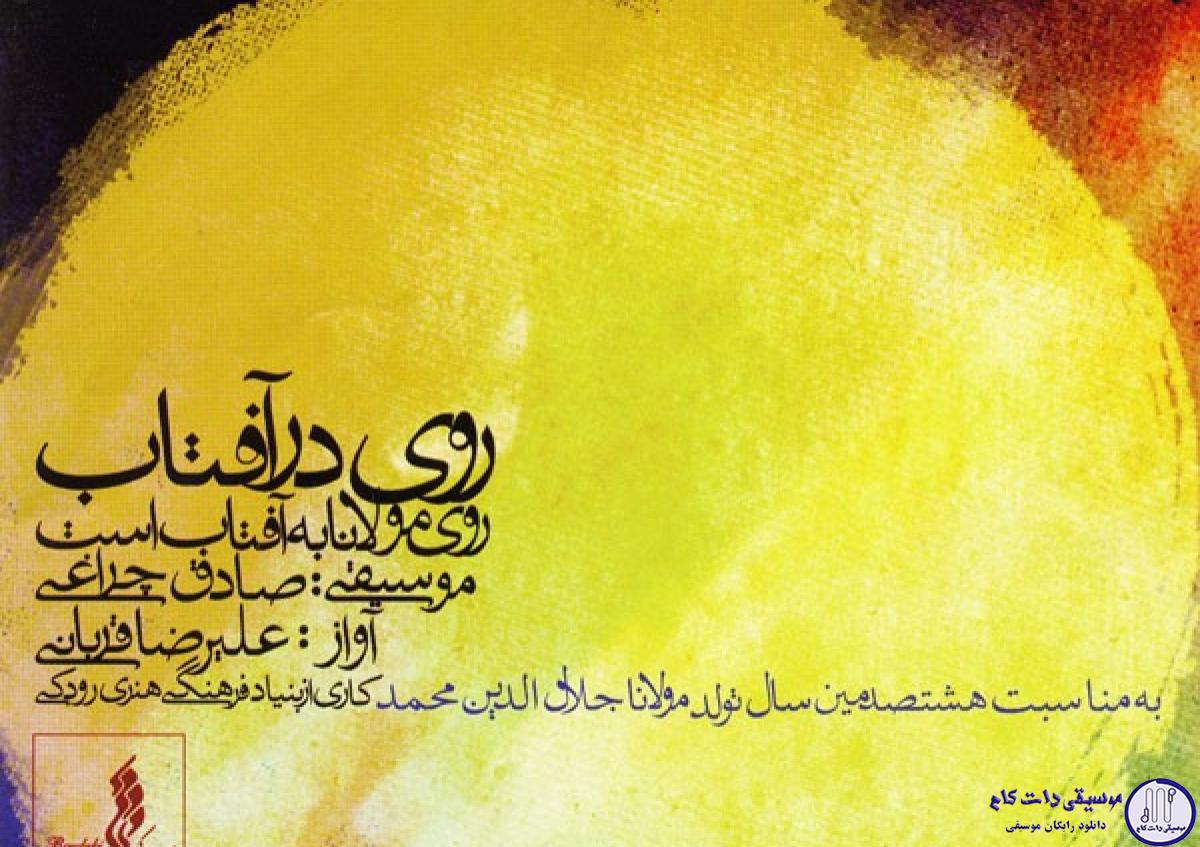 روی در آفتاب
روی مولانا به آفتاب است
موسیقی: صادق چراغی
آواز : علیرضا قربانی
به مناسبت هشتصدمین سال تولد مولانا جلال الدین محمد کاری از بنیاد فرهنگی هنری رودکی
موسیقی دات کام
دانلود رایگان موسیقی
موسیقی دات کام